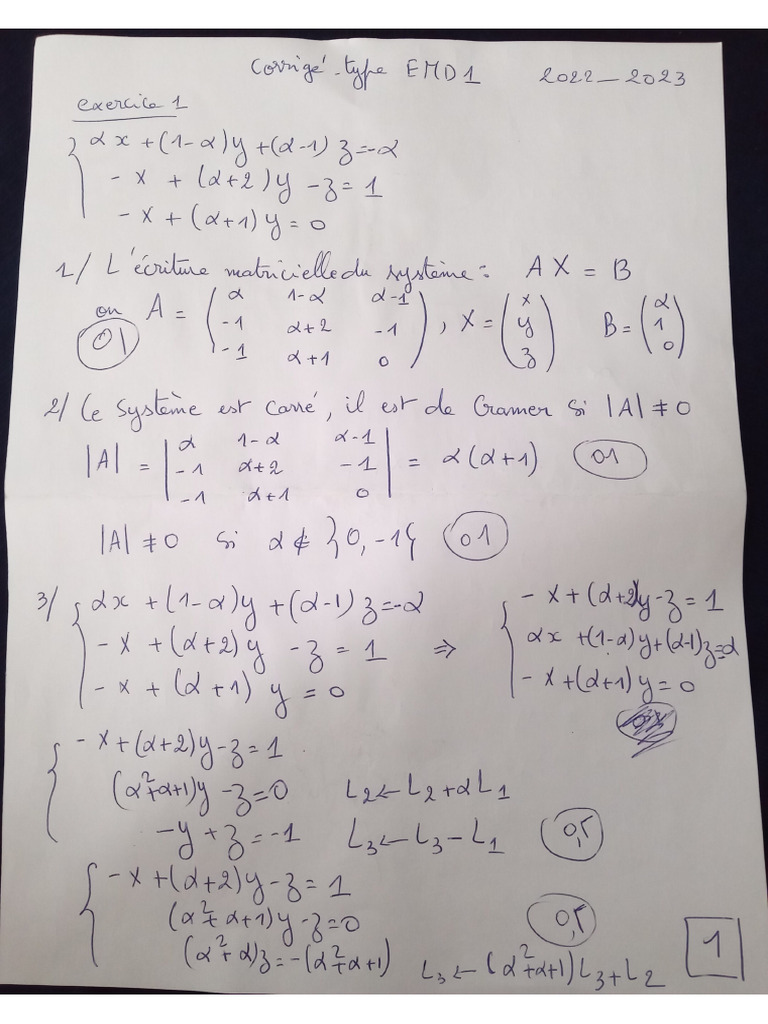 Corrigé-type EMD1 2022-2023
exercice 1
αx + (1-α)y + (α-1)z = -α
-x + (α+2)y - z = 1
-x + (α+1)y = 0
1/ L'écriture matricielle du système : AX = B
ou A = ( α 1-α α-1 ; -1 α+2 -1 ; -1 α+1 0 ), X = ( x ; y ; z ) B = ( α ; 1 ; 0 )
01
2/ Ce système est carré, il est de Cramer si |A| ≠ 0
|A| = | α 1-α α-1 ; -1 α+2 -1 ; -1 α+1 0 | = α(α+1) 01
|A| ≠ 0 si α ∉ }0, -1{ 01
3/ { αx + (1-α)y + (α-1)z = -α ; -x + (α+2)y - z = 1 ; -x + (α+1)y = 0 ⇒ { -x + (α+2)y - z = 1 ; αx + (1-α)y + (α-1)z = α ; -x + (α+1)y = 0
-x + (α+2)y - z = 1
(α²+α+1)y - z = 0 L₂ ← L₂ + αL₁
-y + z = -1 L₃ ← L₃ - L₁ 0,5
-x + (α+2)y - z = 1
(α²+α+1)y - z = 0 0,5
(α²+α)z = -(α²+α+1) L₃ ← (α²+α+1)L₃ + L₂
1